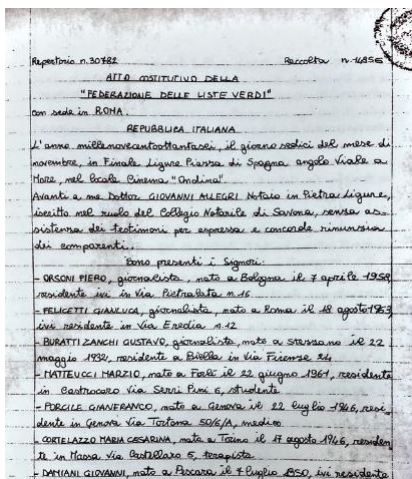 Repertorio n. 30782 Raccolta n. 14856
ATTO COSTITUTIVO DELLA
"FEDERAZIONE DELLE LISTE VERDI"
con sede in ROMA.
REPUBBLICA ITALIANA
L'anno millenovecentottantasei, il giorno sedici del mese di
novembre, in Finale Ligure Piazza di Spagna angolo Viale a
Mare, nel locale Cinema "Ondina".
Avanti a me Dottor GIOVANNI ALLEGRI Notaio in Pietra Ligure,
iscritto nel ruolo del Collegio Notarile di Savona, senza as-
sistenza dei testimoni per espressa e concorde rinunzia
dei comparenti.
Sono presenti i Signori:
- ORSONI PIERO, giornalista, nato a Bologna il 7 aprile 1958,
residente ivi in Via Pietralata n. 16
- FELICETTI GIANLUCA, giornalista, nato a Roma il 18 agosto 1963
ivi residente in Via Eredia n. 12
- BURATTI ZANCHI GUSTAVO, giornalista, nato a Stezzano il 22
maggio 1932, residente a Biella in Via Firenze 24
- MATTEUCCI MARZIO, nato a Forlì il 22 giugno 1961, residente
in Castrocaro Via Serri Pini 6, studente
- PORCILE GIANFRANCO, nato a Genova il 22 luglio 1946, resi-
dente in Genova Via Tortona 50/6/A, medico
- CORTELAZZO MARIA CESARINA, nata a Torino il 17 agosto 1946, residen
te in Massa Via Castellaro 5, terapista
- DAMIANI GIOVANNI, nato a Pescara il 7 luglio 1950, ivi residente